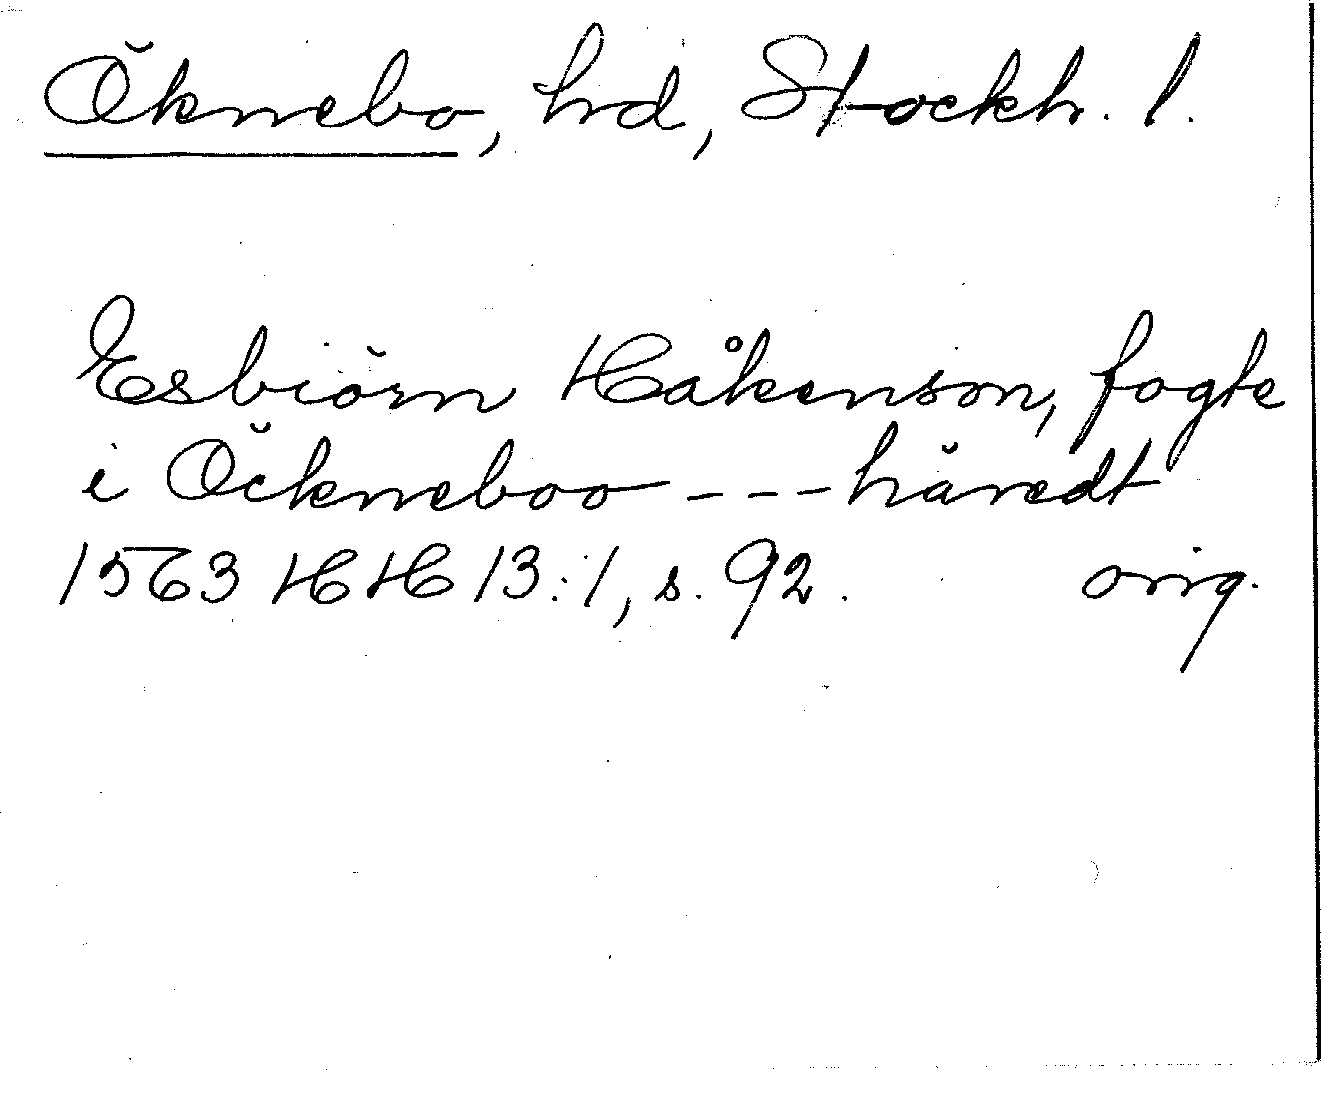 Öknebo, hd, Stockh. l.
Esbiörn Håkenson, fogte
i Öckneboo - - - häredt
1563 HH 13:1, s. 92. orig.